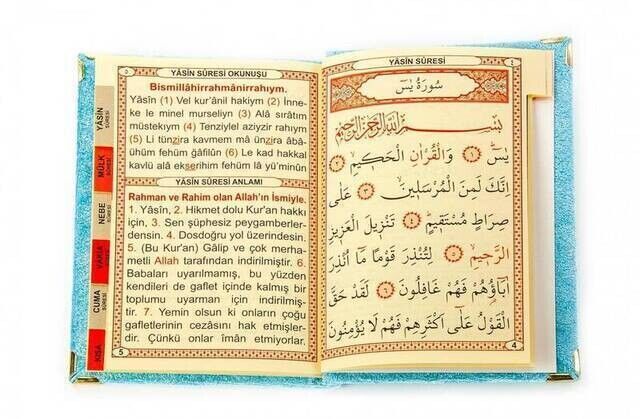 ٥ YÂSÎN SÛRESİ OKUNUŞU
Bismillâhirrahmânirrahıym.
Yâsîn (1) Vel kur'ânil hakiym (2) İnne-
ke le minel murseliyn (3) Alâ sırâtım
müstekıym (4) Tenziylel aziyzir rahıym
(5) Li tünzira kavmem mâ ünzira âbâ-
ühüm fehüm ğâfilûn (6) Le kad hakkal
kavlü alâ ekserihim fehüm lâ yü'minûn
YÂSÎN SÛRESİ ANLAMI
Rahman ve Rahim olan Allah'ın İsmiyle.
1. Yâsîn, 2. Hikmet dolu Kur'an hakkı
için, 3. Sen şüphesiz peygamberler-
densin. 4. Dosdoğru yol üzerindesin.
5. (Bu Kur'an) Gâlip ve çok merha-
metli Allah tarafından indirilmiştir. 6.
Babaları uyarılmamış, bu yüzden
kendileri de gaflet içinde kalmış bir
toplumu uyarman için indirilmiş-
tir. 7. Yemin olsun ki onların çoğu
gafletlerinin cezâsını hak etmişler-
dir. Çünkü onlar îman etmiyorlar.
5
YÂSÎN SÛRESİ
MÜLK SÛRESİ
NEBE SÛRESİ
VÂKIA SÛRESİ
CUMA SÛRESİ
KISA
YÂSÎN SÛRESİ ٤
سُورَةُ يٰسٓ
بِسْمِ اللّٰهِ الرَّحْمٰنِ الرَّحِيمِ
يٰسٓ ﴿١﴾ وَالْقُرْاٰنِ الْحَكٖيمِ ﴿٢﴾
اِنَّكَ لَمِنَ الْمُرْسَلٖينَ ﴿٣﴾ عَلٰى
صِرَاطٍ مُسْتَقٖيمٍ ﴿٤﴾ تَنْزٖيلَ الْعَزٖيزِ
الرَّحٖيمِ ﴿٥﴾ لِتُنْذِرَ قَوْمًا مَٓا اُنْذِرَ
اٰبَٓاؤُ۬هُمْ فَهُمْ غَافِلُونَ ﴿٦﴾ لَقَدْ حَقَّ
الْقَوْلُ عَلٰٓى اَكْثَرِهِمْ فَهُمْ لَا يُؤْمِنُونَ
4